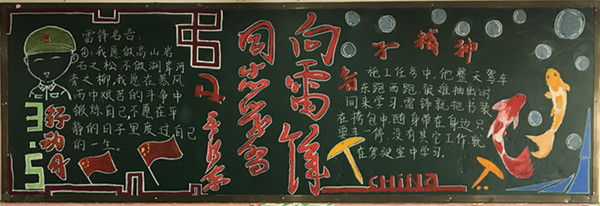 雷锋名言:
①我愿做高山岩
石之松不做湖岸河
旁之柳,我愿在暴风
雨中艰苦的斗争中
锻炼自己不愿在平
静的日子里度过自己
的一生。
3.5
行动月
向雷锋
同志学习
毛泽东
子精神
施工任务中,他整天驾车
东跑西跑,很难抽出时
间来学习,雷锋就把书装
在挎包中随身带在身边,只
要车一停,没有其它工作,就
在驾驶室中学习.
CHINA